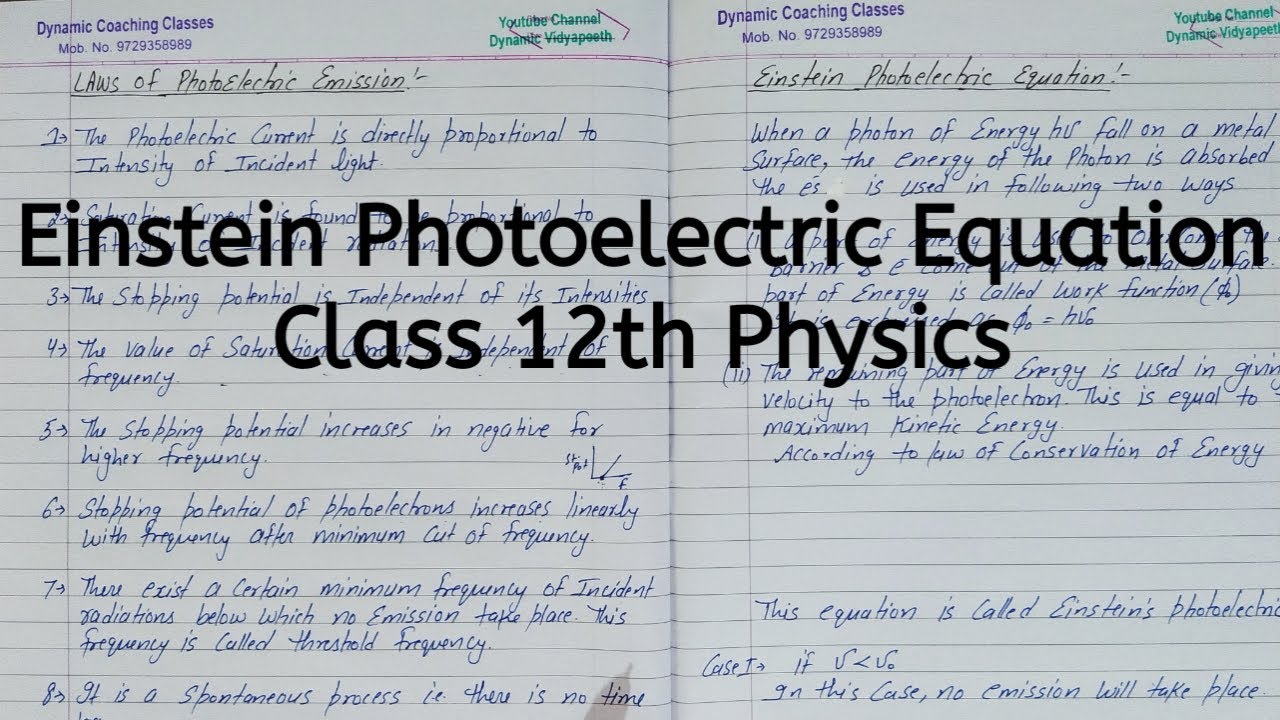 Dynamic Coaching Classes
Mob. No. 9729358989
Youtube Channel
Dynamic Vidyapeeth
LAWS of PhotoElectric Emission:-
1→ The Photoelectric Current is directly proportional to
Intnsity of Incident light.
2→ Saturation Current is found to be proportional to
Incident radiation
3→ The Stopping potential is Independent of its Intensities
4→ The value of Saturation Current is Independent of
frequency.
5→ The Stopping potential increases in negative for
higher frequency.
6→ Stopping potential of photoelectrons increases linearly
with frequency after minimum Cut of frequency.
7→ There exist a Certain minimum frequency of Incident
radiations below which no Emission take place. This
frequency is Called threshold frequency.
8→ It is a Spontaneous process i.e. there is no time
Einstein Photoelectric Equation
Class 12th Physics
Dynamic Coaching Classes
Mob. No. 9729358989
Youtube Channel
Dynamic Vidyapeeth
Einstein Photoelectric Equation:-
When a photon of Energy hν fall on a metal
Surface, the energy of the Photon is absorbed
the es is used in following two ways
(i) A part of Energy is used to overcome the
barrier & e come out of the metal Surface.
part of Energy is Called work function (ϕ₀)
ϕ₀ = hν₀
(ii) The remaining part of Energy is used in giving
velocity to the photoelectron. This is equal to
maximum Kinetic Energy.
According to law of Conservation of Energy
This equation is Called Einstein's photoelectric
Case I→ if ν < ν₀
In this Case, no emission will take place.